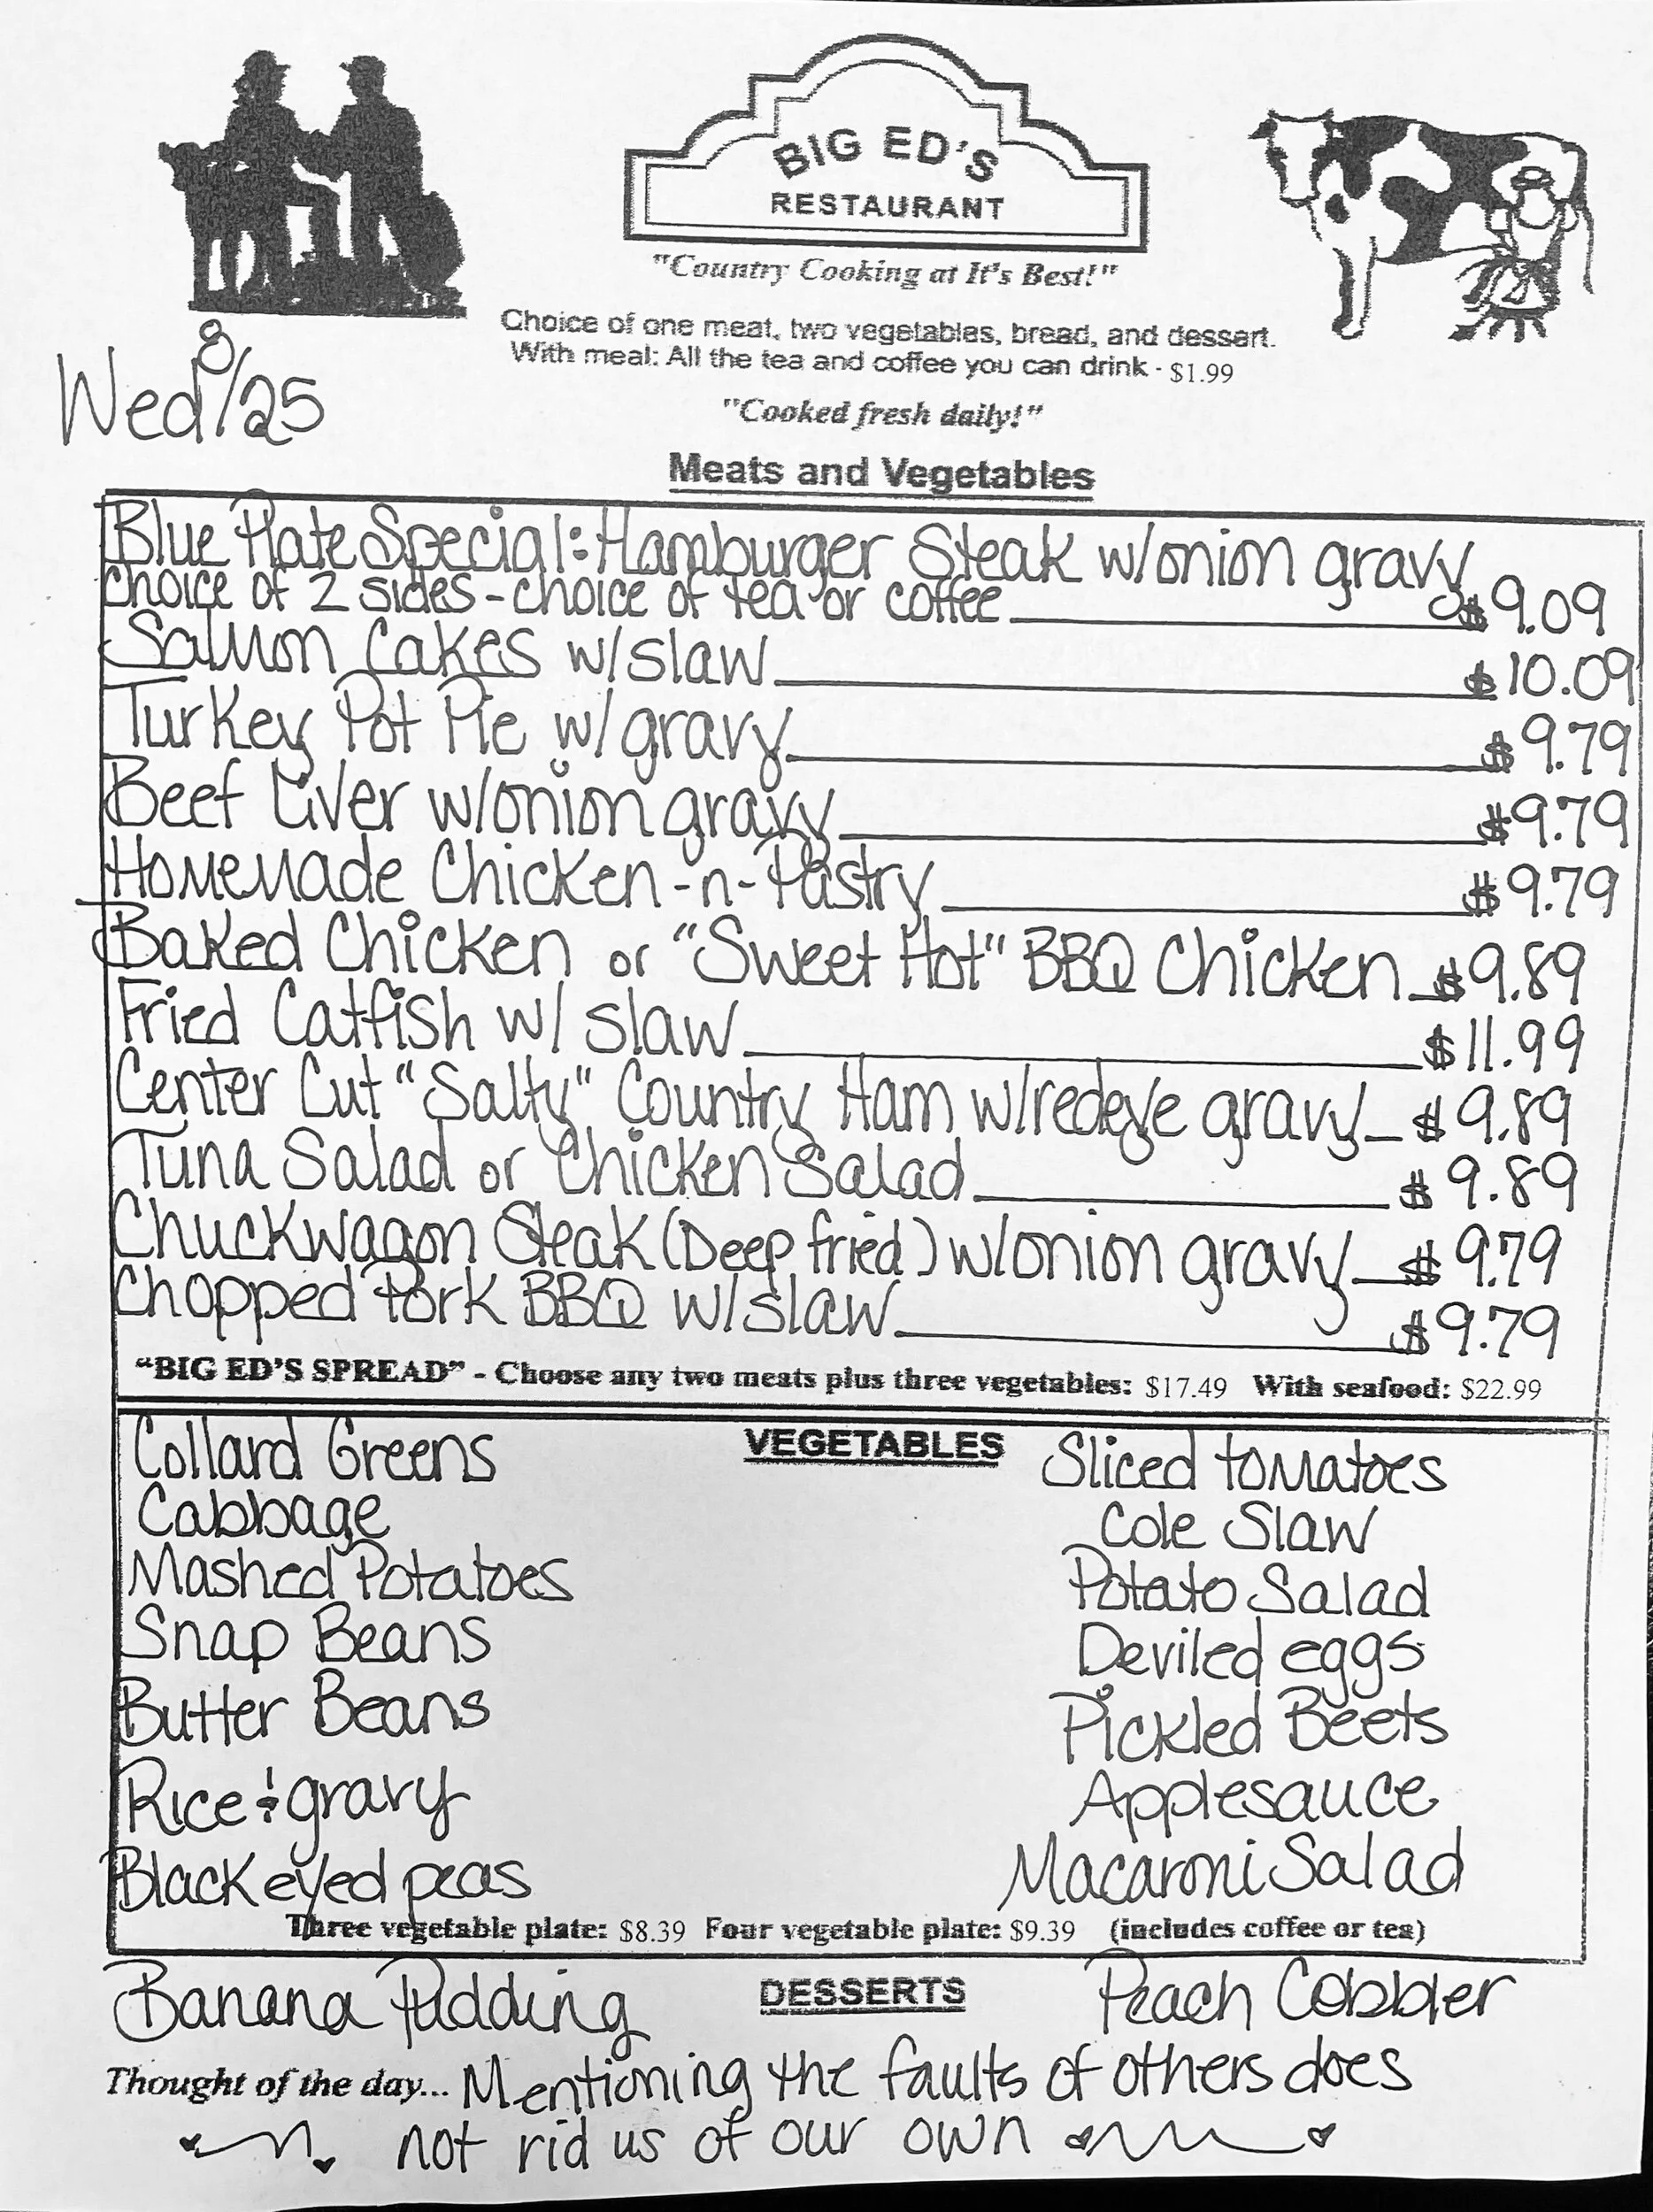 BIG ED'S
RESTAURANT
"Country Cooking at It's Best!"
Choice of one meat, two vegetables, bread, and dessert.
With meal: All the tea and coffee you can drink - $1.99
Wed 8/25
"Cooked fresh daily!"
Meats and Vegetables
Blue Plate Special: Hamburger Steak w/onion gravy
choice of 2 sides - choice of tea or coffee $9.09
Salmon Cakes w/slaw $10.09
Turkey Pot Pie w/gravy $9.79
Beef Liver w/onion gravy $9.79
Homemade Chicken-n-Pastry $9.79
Baked Chicken or "Sweet Hot" BBQ Chicken $9.89
Fried Catfish w/ slaw $11.99
Center Cut "Salty" Country Ham w/redeye gravy $9.89
Tuna Salad or Chicken Salad $9.89
Chuckwagon Steak (Deep fried) w/onion gravy $9.79
Chopped Pork BBQ w/slaw $9.79
"BIG ED'S SPREAD" - Choose any two meats plus three vegetables: $17.49 With seafood: $22.99
VEGETABLES
Collard Greens
Cabbage
Mashed Potatoes
Snap Beans
Butter Beans
Rice & gravy
Black eyed peas
Sliced tomatoes
Cole Slaw
Potato Salad
Deviled eggs
Pickled Beets
Applesauce
Macaroni Salad
Three vegetable plate: $8.39 Four vegetable plate: $9.39 (includes coffee or tea)
DESSERTS
Banana Pudding
Peach Cobbler
Thought of the day... Mentioning the faults of others does
not rid us of our own